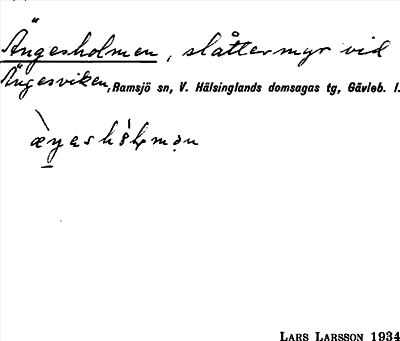 Ängesholmen, slåttermyr vid
Ängesviken, Ramsjö sn, V. Hälsinglands domsagas tg, Gävleb. l.
LARS LARSSON 1934